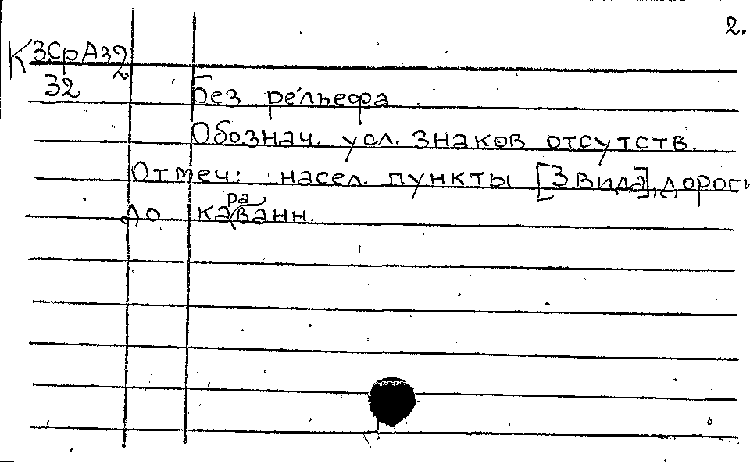 2.
К 3СрАз2
32
Без рельефа.
Обознач. усл. знаков отсутств.
Отмеч: насел. пункты [3 вида], дороги
до караванн.